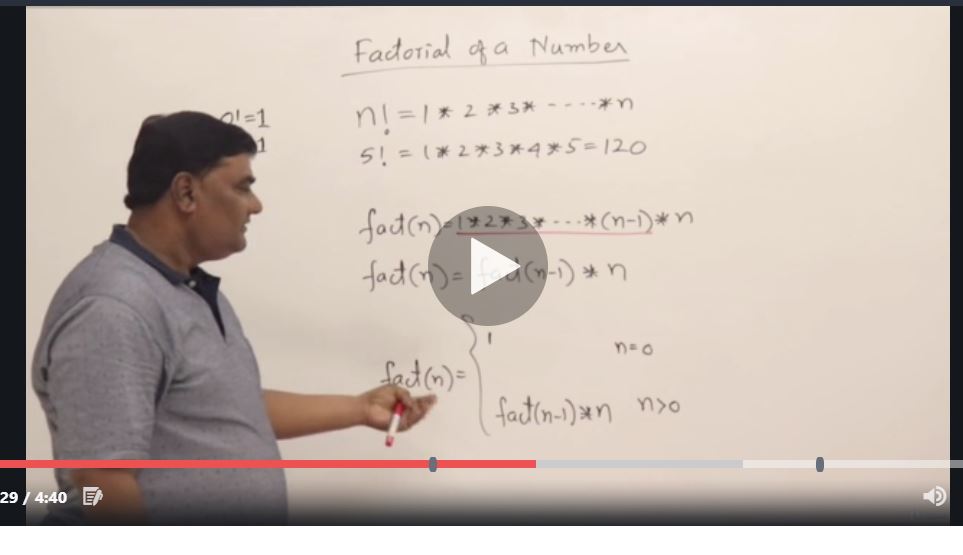 Factorial of a Number
0!=1
1
n! = 1 * 2 * 3 * ---- * n
5! = 1 * 2 * 3 * 4 * 5 = 120
fact(n)= 1 * 2 * 3 * --- * (n-1) * n
fact(n)= fact(n-1) * n
fact(n)=
1 n=0
fact(n-1)*n n>0
29 / 4:40